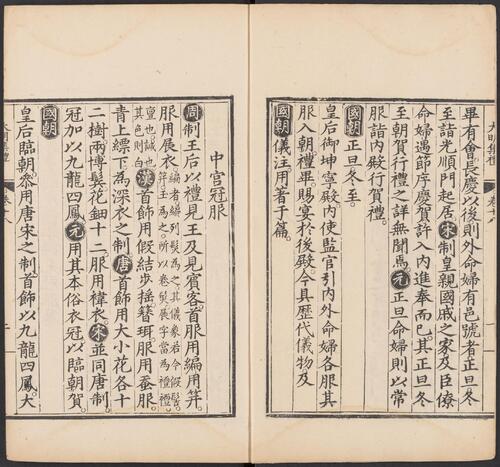 畢有會長慶以後則外命婦有邑號者正旦冬
至詣光順門起居宋制皇親國戚之家及臣僚
命婦遇節序慶賀許入內進奉而已其正旦冬
至朝賀行禮之詳無聞焉元正旦命婦則以常
服詣內殿行賀禮
國朝正旦冬至
皇后御坤寧殿內使監官引內外命婦各服其
服入朝禮畢賜宴於後殿今具歷代儀物及
國朝儀注用著于篇
大明集禮
中宮冠服
周制王后以禮見王及見賓客首服用編用筓
服用展衣編者編列髮為之其儀象若今假髻
筓王為之所以卷髮展字當為襢襢
亶也誠也
其色則白漢首飾用假結步搖簪珥服用蚕服
青上縹下為深衣之制唐首飾用大小花各十
二樹兩博鬢花鈿十二服用褘衣宋並同唐制
冠加以九龍四鳳元用其本俗衣冠以臨朝賀
國朝
皇后臨朝叅用唐宋之制首飾以九龍四鳳大